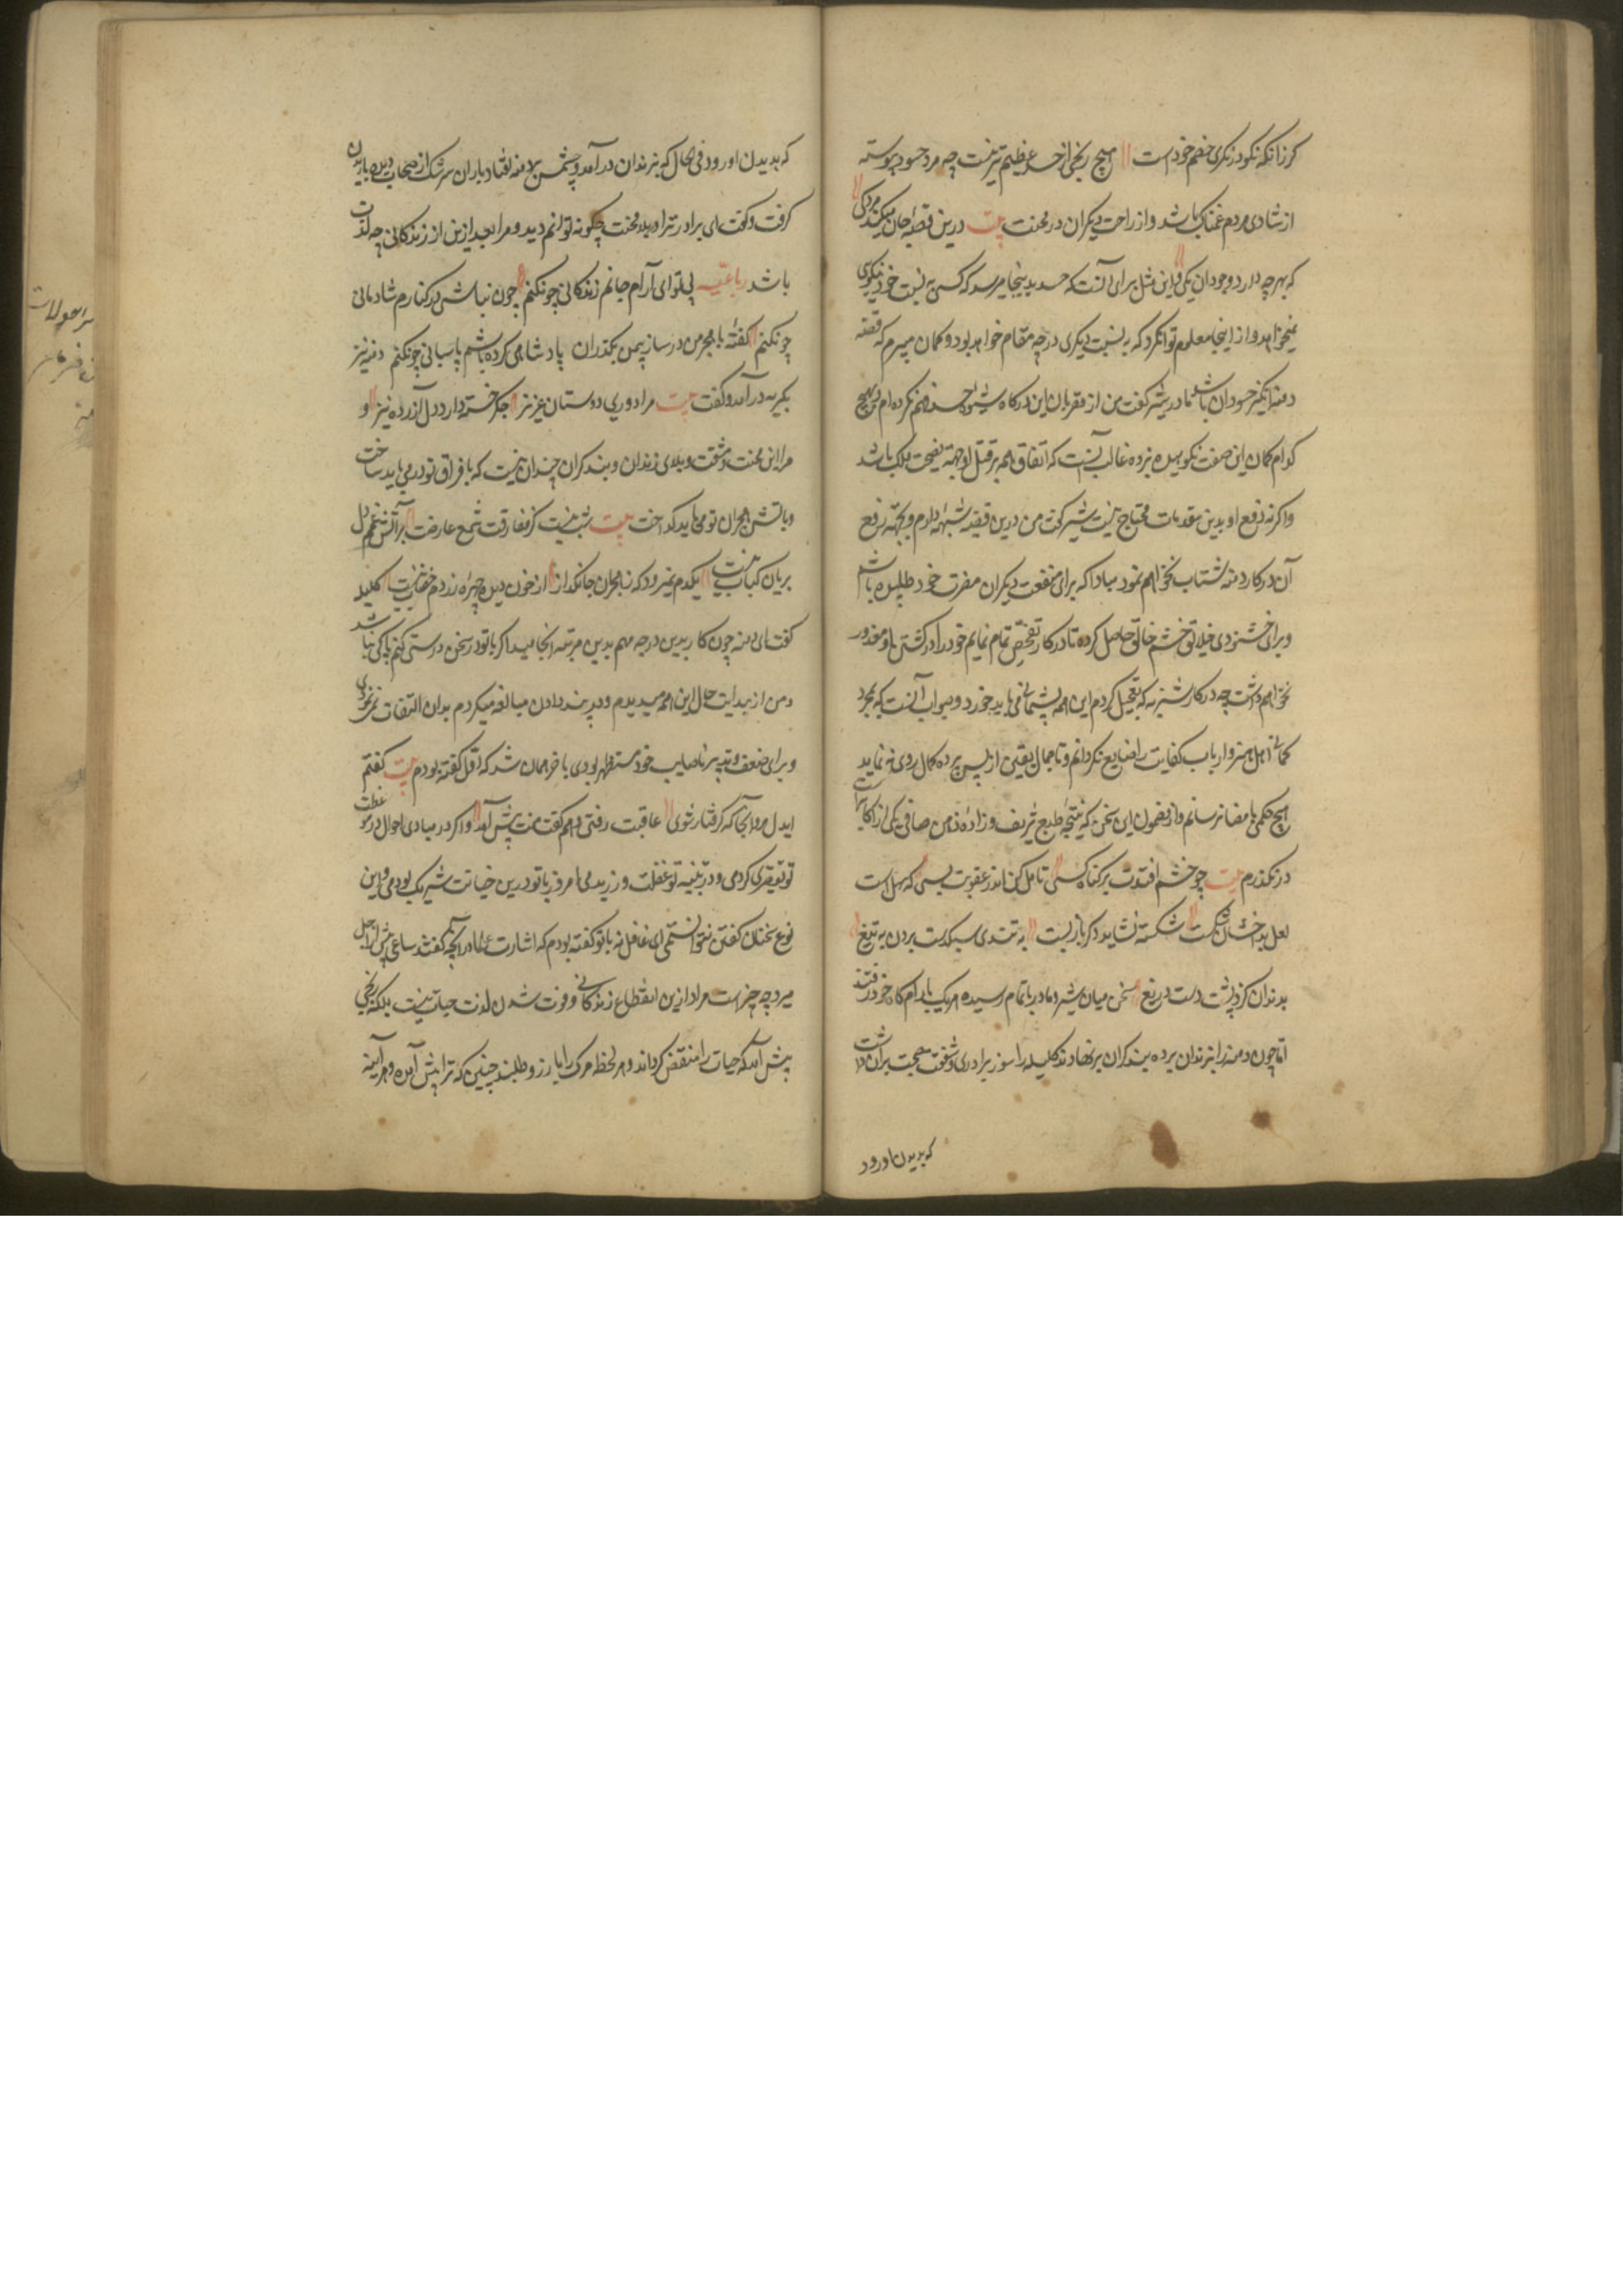 کرزانکه نکو درنکری خصم خود است هیچ رنجی از حسد عظیم تر نیست چه مرد حسود پیوسته
از شادی مردم غمناک باشد و از راحت دیکران در محنت بیت درین قضیه جان میکند مردکی
که بهر چه دارد وجودان یکی و این مثل برای آنست که حسد بدینجا میرسد که کسی به نسبت خود نیکویی
نمیخواهد و از اینجا معلوم توان کرد که به نسبت دیکری در چه مقام خواهد بود و کمان میبرم که قصه
دمنه انکیز حسودان باشد مادر شیر کفت من از مقربان این درکاه حسد فهم نکرده ام و هیچ
کدام کمان این صفت نکوهیده نبرده غالب آنست که اتفاق همه بر قتل او بجهة نصیحت ملک باشد
واکرنه دفع او بدین مقدمات محتاج نیست شیر کفت من درین قضیه شبهه دارم و بجهة رفع
آن در کار دمنه شتاب نخواهم نمود مبادا که برای منفعت دیکران مضرت خود طلبیده باشم
و برای خشنودی خلایق خشم خالق حاصل کرده تا در کار تفحص تمام ننمایم خود را در کشتن او معذور
نخواهم داشت چه در کار شنزبه که تعجیل کردم این همه پشیمانی می باید خورد و صواب آنست که بمجرد
کمانی اهل هنر و ارباب کفایت را ضایع نکردانم و تا جمال یقین از پس پرده کمال روی ننماید
هیچ حکمی بامضا نرسانم و از مضمون این سخن که نتیجه طبع شریف و زاده ذهن صافی یکی از اکابر است
در نکذرم بیت چو خشم افتدت بر کناه کسی تامل کن اندر عقوبت بسی که سهل است
لعل بدخشان شکست شکسته نشاید دکر باز بست به تندی سبکدست بردن به تیغ
بدندان کزد پشت دست دریغ سخن میان شیر و مادر باتمام رسیده هریک بآرام کاه خود رفتند
اما چون دمنه را بزندان برده بند کران برنهادند کلیله را سوز برادری و شفقت صحبت بران داشت
که بدیدن او رود
که بدیدن او رود فی الحال که بزندان درآمد و چشمش بر دمنه افتاد باران سرشک از سحاب دیده باریدن
کرفت و کفت ای برادر ترا در بلا و محنت چکونه توانم دید و مرا بعد ازین از زندکانی چه لذت
باشد رباعیه بی تو ای آرام جانم زندکانی چون کنم چون نباشی در کنارم شادمانی
چون کنم کفته با هجر من در ساز بی من بکذران پادشاهی کرده باشم پاسبانی چون کنم دمنه نیز
بکریه درآمد و کفت بیت مرا دوری دوستان عزیز جکر خسته دارد دل آزرده نیز و
مرا این محنت و مشقت و بلای زندان و بند کران چندان نیست که با فراق تو در می باید ساخت
و بآتش هجران تو می باید کداخت بیت شب نیست کز مفارقت شمع عارضت بر آتش غم دل
بریان کباب نیست یکدم نمیرود که ز هجران جانکداز از خون دیده چهره زردم خضاب نیست کلیله
کفت ای دمنه چون کار بدین درجه و مهم بدین مرتبه انجامید اکر با تو در سخن درشتی کنم باکی نباشد
و من از بدایت حال این همه میدیدم و در پند دادن مبالغه میکردم بدان التفات نمی نمودی
و برای ضعیف و تدبیر ناصایب خود مستظهر بودی با خر همان شد که اول کفته بودم بیت کفتم
ایدل مرو آنجا که کرفتار شوی عاقبت رفتی و هم کفت منت پیش آمد و اکر در مبادی احوال در موعظت
تو تقصیری کردمی و در تنبیه تو غفلت ورزیدمی امروز با تو درین خیانت شریک بودمی و این
نوع سخنان کفتن نتوانستمی ای غافل نه با تو کفته بودم که اشارت علما در آنچه کفته اند ساعی پیش از اجل
میرد چه چیز است مراد ازین انقطاع زندکانی و فوت شدن لذت حیات نیست بلکه رنجی
پیش آید که حیات را منقص کرداند و هر لحظه مرک را بآرزو طلبد چنین که ترا پیش آمده و هر آینه